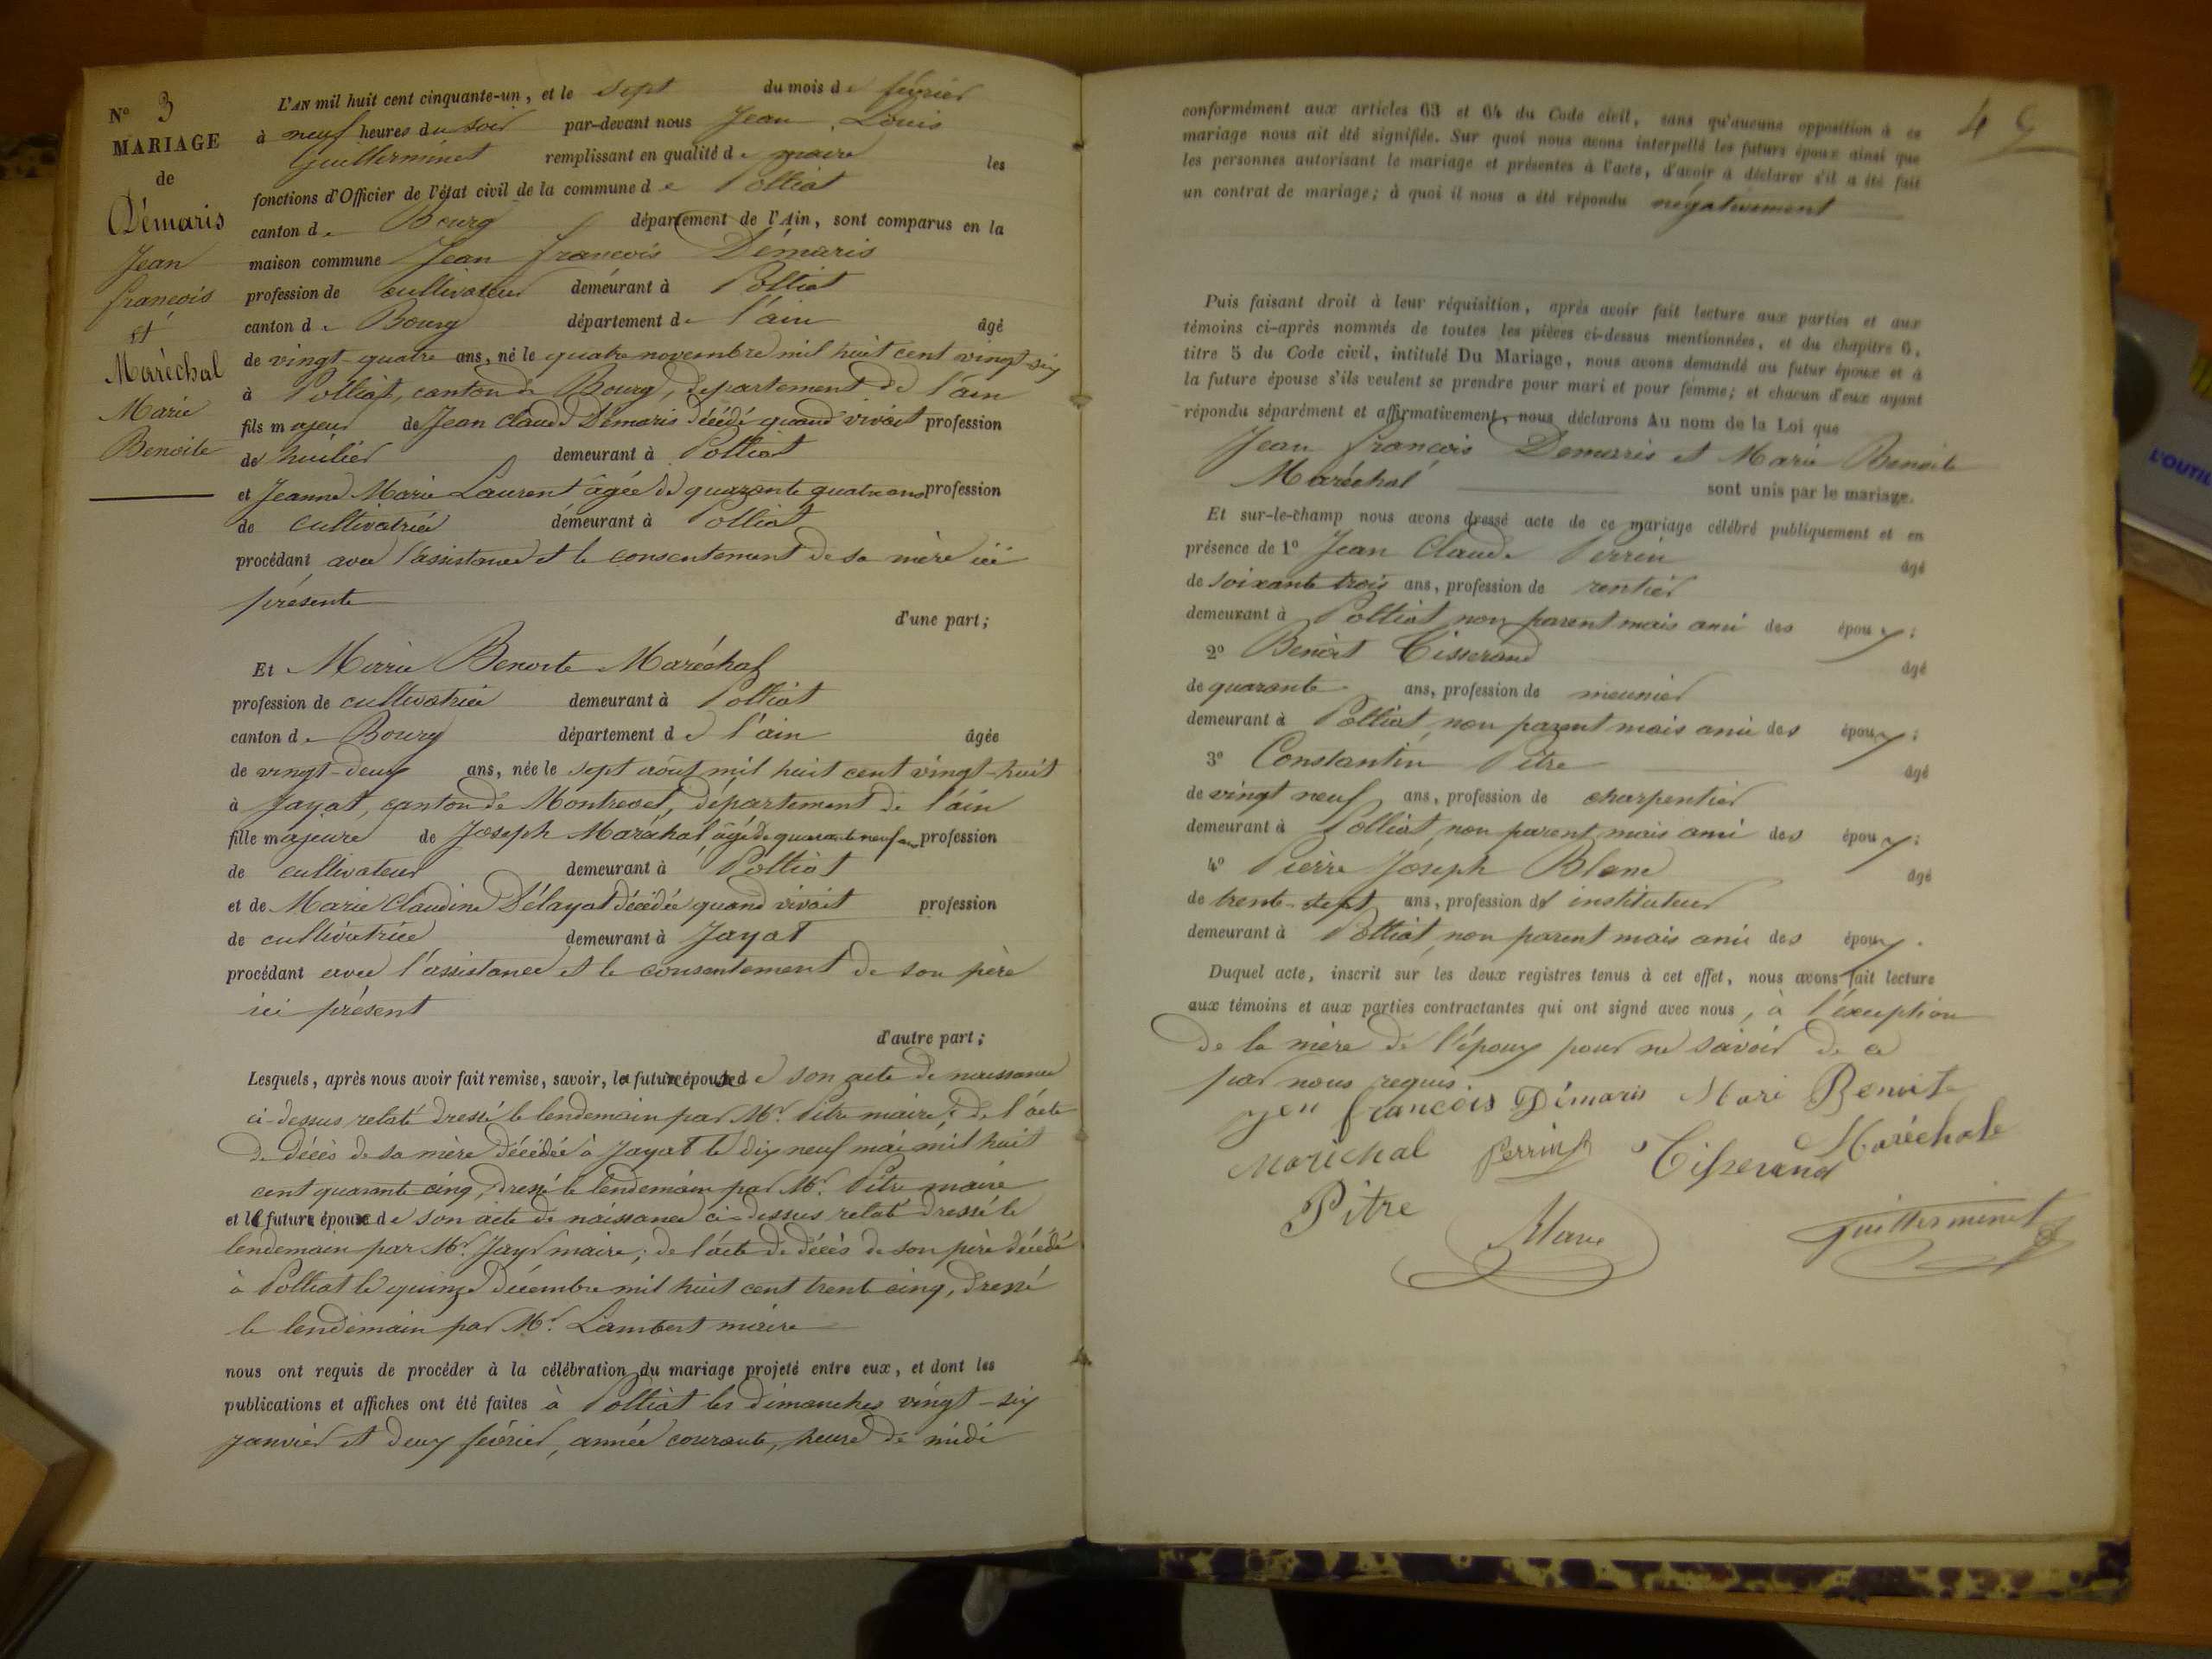 N° 3
MARIAGE
de
Démaris
Jean
françois
et
Maréchal
Marie
Benoite
L'AN mil huit cent cinquante-un, et le sept du mois de février
à neuf heures du soir par-devant nous Jean Louis
Guillerminet remplissant en qualité de maire les
fonctions d'Officier de l'état civil de la commune de Polliat
canton de Bourg département de l'Ain, sont comparus en la
maison commune Jean françois Démaris
profession de cultivateur demeurant à Polliat
canton de Bourg département de l'ain âgé
de vingt-quatre ans, né le quatre novembre mil huit cent vingt-six
à Polliat, canton de Bourg, département de l'ain
fils majeur de Jean Claude Démaris décédé quand vivait profession
de huilier demeurant à Polliat
et Jeanne Marie Laurent âgée de quarante quatre ans profession
de cultivatrice demeurant à Polliat
procédant avec l'assistance et le consentement de sa mère ici
présente
d'une part;
Et Marie Benoite Maréchal
profession de cultivatrice demeurant à Polliat
canton de Bourg département de l'ain âgée
de vingt-deux ans, née le sept août mil huit cent vingt-huit
à Jayat, canton de Montrevel, département de l'ain
fille majeure de Joseph Maréchal, âgé de quarante neuf ans profession
de cultivateur demeurant à Polliat
et de Marie Claudine Délayat décédée quand vivait profession
de cultivatrice demeurant à Jayat
procédant avec l'assistance et le consentement de son père
ici présent
d'autre part;
Lesquels, après nous avoir fait remise, savoir, la future épouse de son acte de naissance
ci-dessus relaté dressé le lendemain par Mr. Pitre maire; de l'acte
de décès de sa mère décédée à Jayat le dix neuf mai mil huit
cent quarante cinq, dressé le lendemain par Mr. Pitre maire
et le futur époux de son acte de naissance ci-dessus relaté dressé le
lendemain par Mr. Jayr maire; de l'acte de décès de son père décédé
à Polliat le quinze décembre mil huit cent trente cinq, dressé
le lendemain par Mr. Lambert maire
nous ont requis de procéder à la célébration du mariage projeté entre eux, et dont les
publications et affiches ont été faites à Polliat les dimanches vingt-six
janvier et deux février, année courante, heure de midi
4
conformément aux articles 63 et 64 du Code civil, sans qu'aucune opposition à ce
mariage nous ait été signifiée. Sur quoi nous avons interpellé les futurs époux ainsi que
les personnes autorisant le mariage et présentes à l'acte, d'avoir à déclarer s'il a été fait
un contrat de mariage; à quoi il nous a été répondu négativement
Puis faisant droit à leur réquisition, après avoir fait lecture aux parties et aux
témoins ci-après nommés de toutes les pièces ci-dessus mentionnées, et du chapitre 6,
titre 5 du Code civil, intitulé Du Mariage, nous avons demandé au futur époux et à
la future épouse s'ils veulent se prendre pour mari et pour femme; et chacun d'eux ayant
répondu séparément et affirmativement, nous déclarons Au nom de la Loi que
Jean françois Demaris et Marie Benoite
Maréchal sont unis par le mariage.
Et sur-le-champ nous avons dressé acte de ce mariage célébré publiquement et en
présence de 1° Jean Claude Perrin âgé
de soixante trois ans, profession de rentier
demeurant à Polliat non parent mais ami des époux;
2° Benoit Tisserand âgé
de quarante ans, profession de meunier
demeurant à Polliat, non parent mais ami des époux;
3° Constantin Pitre âgé
de vingt neuf ans, profession de charpentier
demeurant à Polliat, non parent mais ami des époux;
4° Pierre Joseph Blanc âgé
de trente-sept ans, profession d' instituteur
demeurant à Polliat, non parent mais ami des époux.
Duquel acte, inscrit sur les deux registres tenus à cet effet, nous avons fait lecture
aux témoins et aux parties contractantes qui ont signé avec nous, à l'exception
de la mère de l'époux pour ne savoir de ce
par nous requis
jen francois Démaris Mari Benoite
Maréchale
Maréchal Perrin Tisserand
Pitre Blanc Guillerminet
L'OUTIL